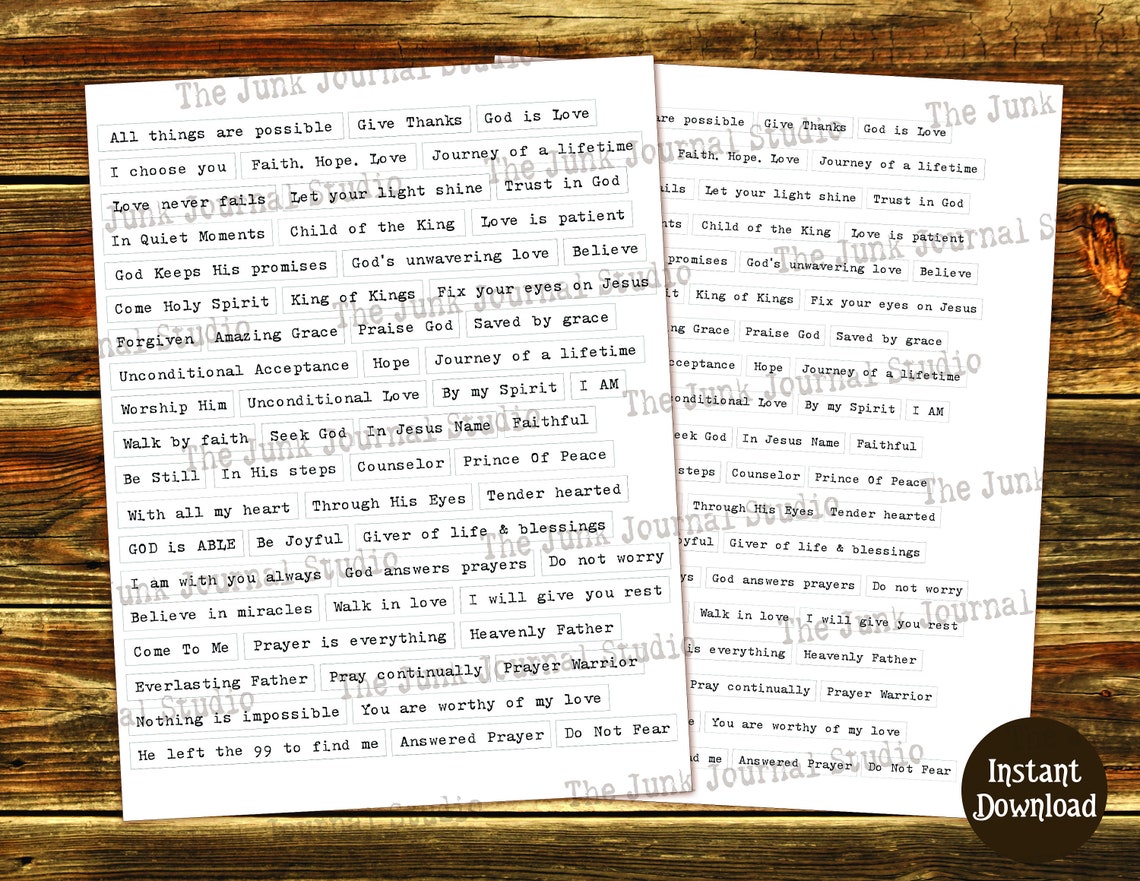 The Junk Journal Studio
All things are possible Give Thanks God is Love
I choose you Faith. Hope. Love Journey of a lifetime
The Junk Journal Studio
Love never fails Let your light shine Trust in God
Junk Journal Studio
In Quiet Moments Child of the King Love is patient
God Keeps His promises God's unwavering love Believe
Come Holy Spirit King of Kings Fix your eyes on Jesus
The Junk Journal Studio
Forgiven Amazing Grace Praise God Saved by grace
Unconditional Acceptance Hope Journey of a lifetime
Worship Him Unconditional Love By my Spirit I AM
Walk by faith Seek God In Jesus Name Faithful
The Junk Journal Studio
Be Still In His steps Counselor Prince Of Peace
With all my heart Through His Eyes Tender hearted
GOD is ABLE Be Joyful Giver of life & blessings
The Junk Journal Studio
I am with you always God answers prayers Do not worry
Junk Journal Studio
Believe in miracles Walk in love I will give you rest
Come To Me Prayer is everything Heavenly Father
Everlasting Father Pray continually Prayer Warrior
The Junk Journal Studio
Nothing is impossible You are worthy of my love
He left the 99 to find me Answered Prayer Do Not Fear
The Junk Journal Studio
The Junk
are possible Give Thanks God is Love
Faith. Hope. Love Journey of a lifetime
Let your light shine Trust in God
Child of the King Love is patient
The Junk Journal S
promises God's unwavering love Believe
King of Kings Fix your eyes on Jesus
ng Grace Praise God Saved by grace
cceptance Hope Journey of a lifetime
The Junk Journal Studio
conditional Love By my Spirit I AM
eek God In Jesus Name Faithful
steps Counselor Prince Of Peace
The Junk
Through His Eyes Tender hearted
oyful Giver of life & blessings
God answers prayers Do not worry
Walk in love I will give you rest
The Junk Journal
is everything Heavenly Father
Pray continually Prayer Warrior
You are worthy of my love
d me Answered Prayer Do Not Fear
Instant
Download